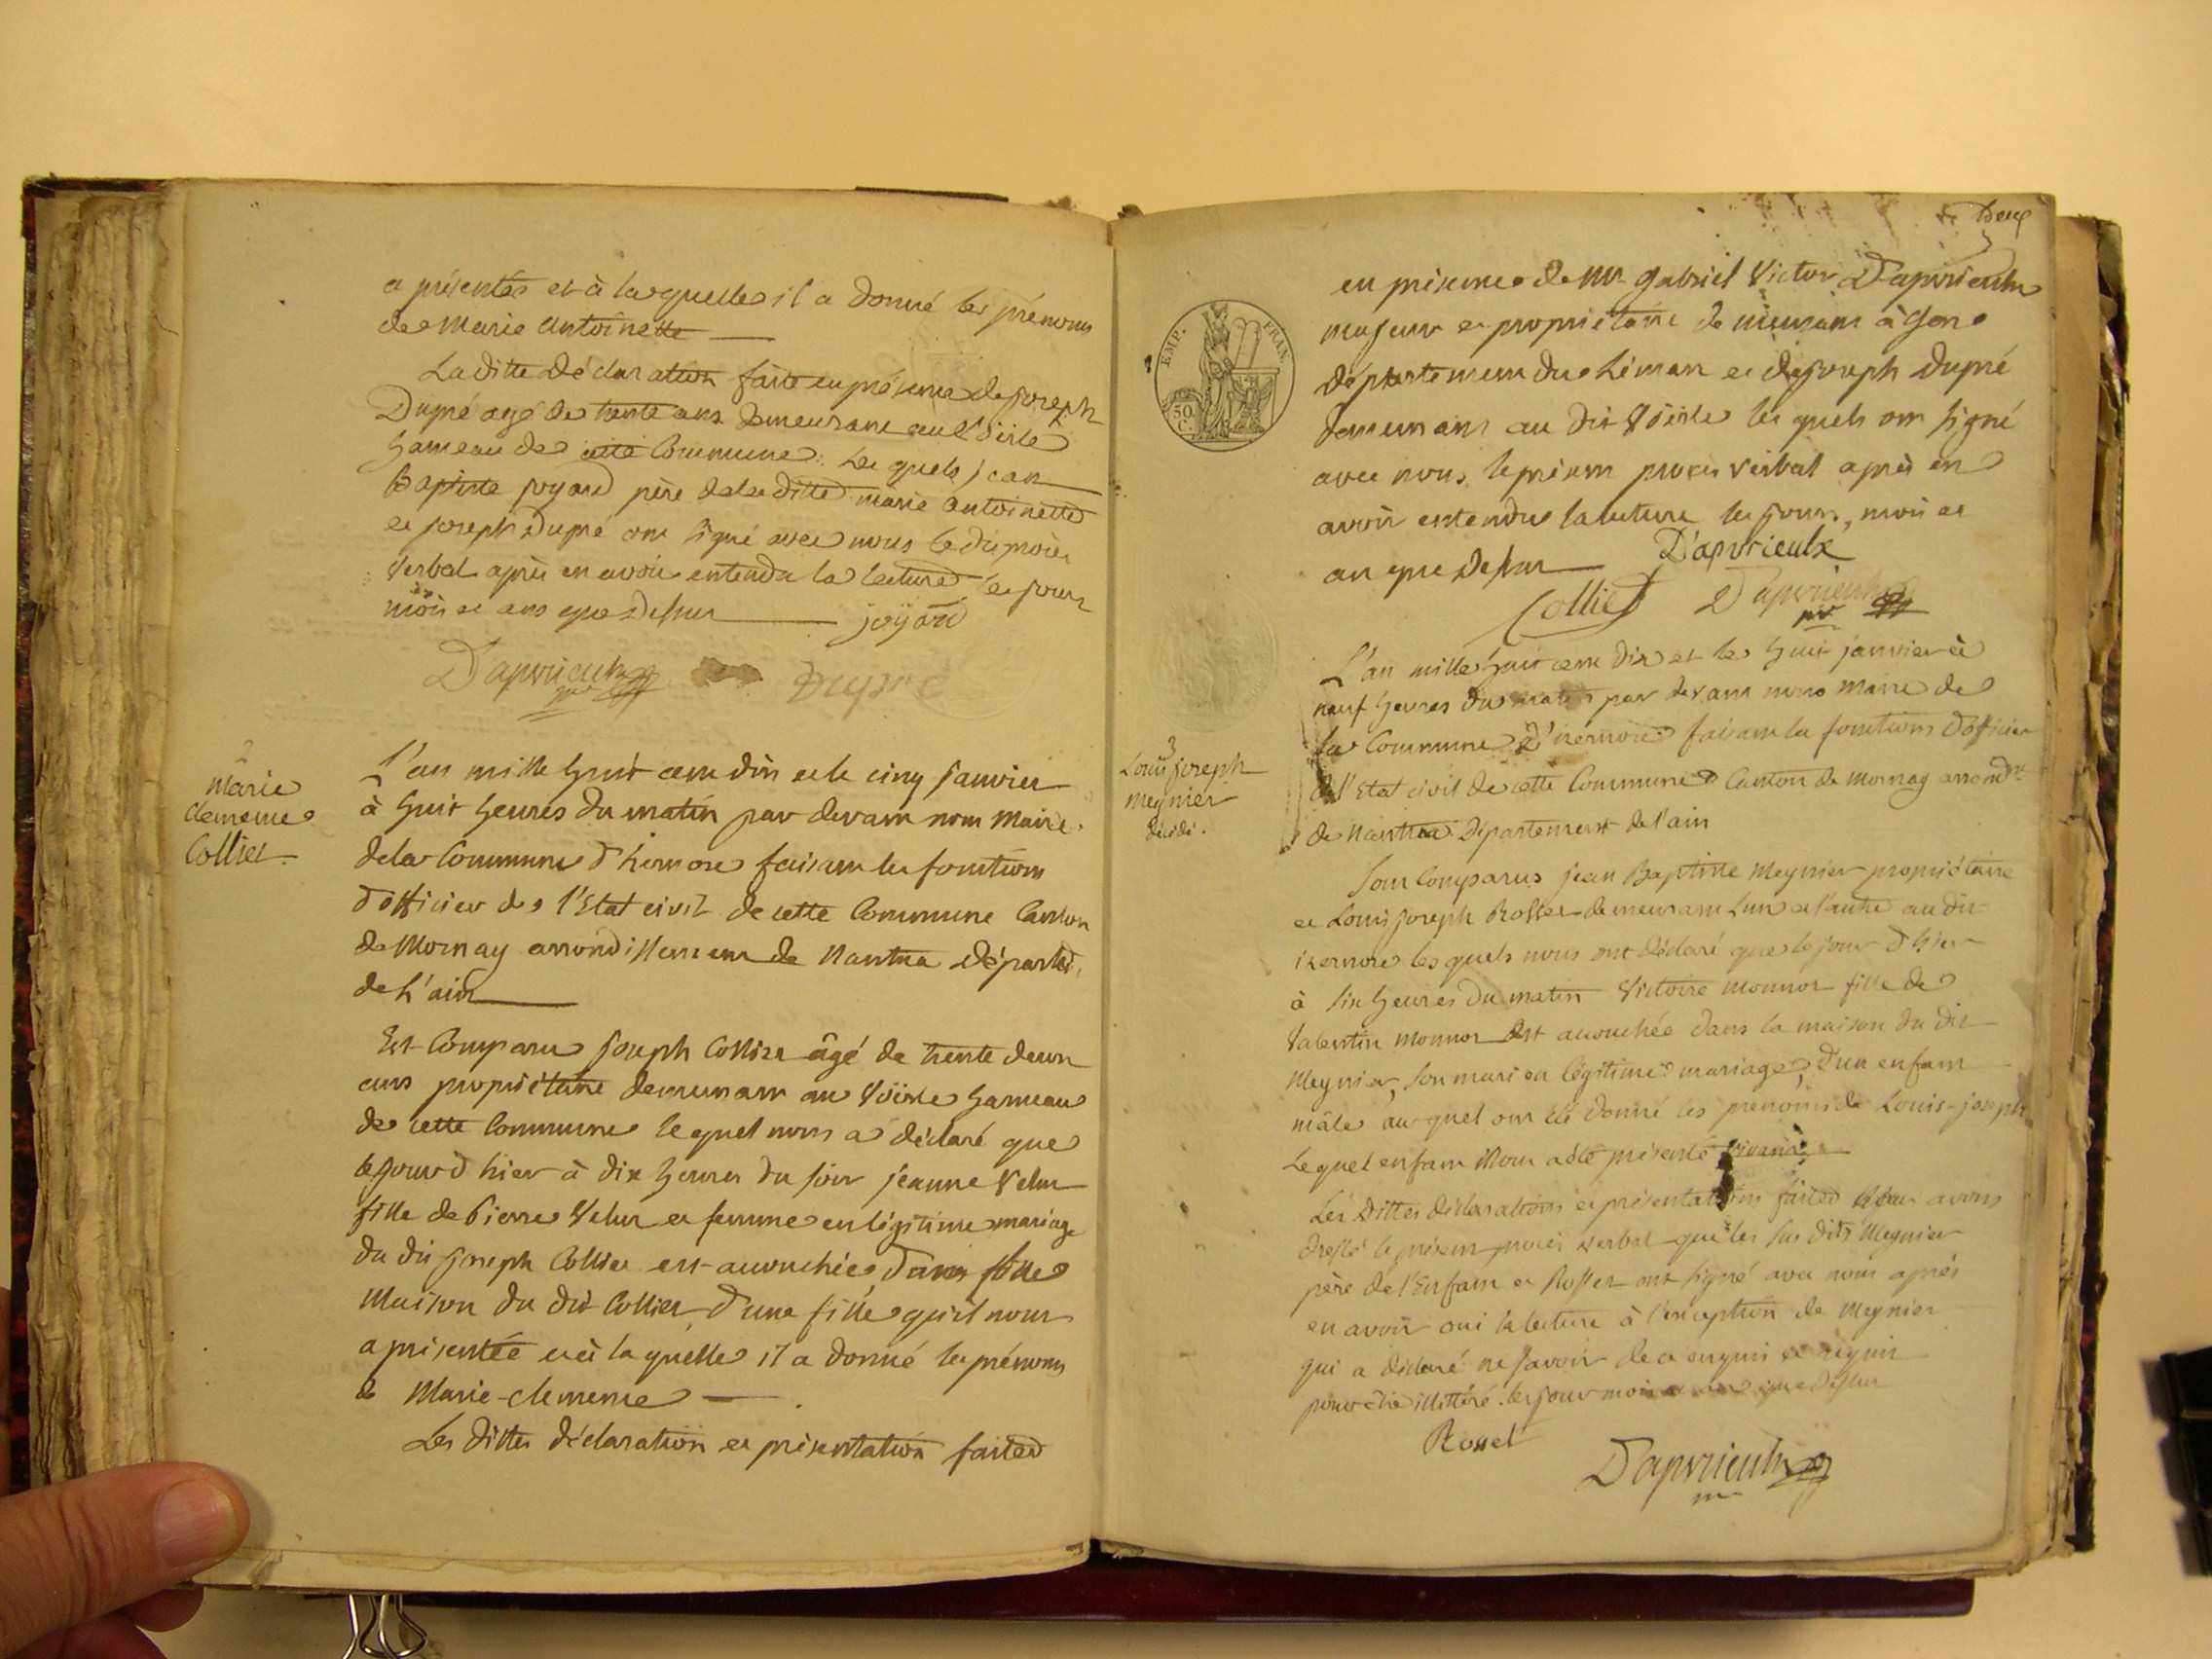 a présentée et à la quelle il a donné les prénoms
de Marie Antoinette
La ditte déclaration faite en présence de joseph
Dupré agé de trente ans demeurant au Voërle
hameau de cette Commune. Les quels jean
Baptiste joyard père de la ditte marie antoinette
et joseph Dupré ont signé avec nous le dit procès
verbal après en avoir entendu la lecture les jour
mois et ans que dessus joyard
D'apvrieulx Dupré
2
Marie
clemence
Colliet.
L'an mille huit cent dix et le cinq janvier
à huit heures du matin par devant nous Maire
de la Commune d'hizernore faisant les fonctions
d'officier de l'Etat civil de cette Commune Canton
de Mornay arrondissement de Nantua départ.t
de L'ain
Est Comparu joseph Colliet âgé de trente deux
ans propriétaire demeurant au Voërle hameau
de cette Commune lequel nous a déclaré que
le jour d'hier à dix heures du soir jeanne Velu
fille de Pierre Velu et femme en légitime mariage
du dit joseph Colliet est accouchée dans
Maison du dit Colliet d'une fille qu'il nous
a présentée et à la quelle il a donné les prénoms
de Marie-clemence
Les dittes déclaration et présentation faites
Deux
en présence de Mr gabriel Victor D'apvrieulx
majeur et propriétaire demeurant à Gex
département du Léman et de joseph Dupré
demeurant au dit Voërle les quels ont signé
avec nous le présent procès verbal après en
avoir entendu la lecture les jour, mois et
an que dessus D'apvrieulx
Colliet D'apvrieulx
EMP. FRAN.
50 C.
3
Louis joseph
Meynier
décédé.
L'an mille huit cent dix et le huit janvier à
neuf heures du matin par devant nous Maire de
la Commune d'izernore faisant les fonctions d'officier
de l'Etat civil de cette Commune Canton de Mornay arrondt
de Nantua Département de l'ain
Sont Comparus jean Baptiste Meynier propriétaire
et Louis joseph Rosset demeurant l'un et l'autre au dit
izernore les quels nous ont déclaré que le jour d'hier
à six heures du matin Victoire Monnor fille de
Valentin Monnor est accouchée dans la maison du dit
Meynier, son mari en légitime mariage, d'un enfant
mâle auquel ont été donné les prenoms de Louis-joseph
Lequel enfant nous a été présenté vivant
Les Dittes déclarations et présentations faites nous avons
dressé le présent procès verbal que les sus dits Meynier
père de l'Enfant et Rosset ont signé avec nous après
en avoir oui la lecture à l'exception de Meynier
qui a déclaré ne savoir de ce enquis et requis
pour être illitéré. les jour mois et an que dessus
Rosset
D'apvrieulx